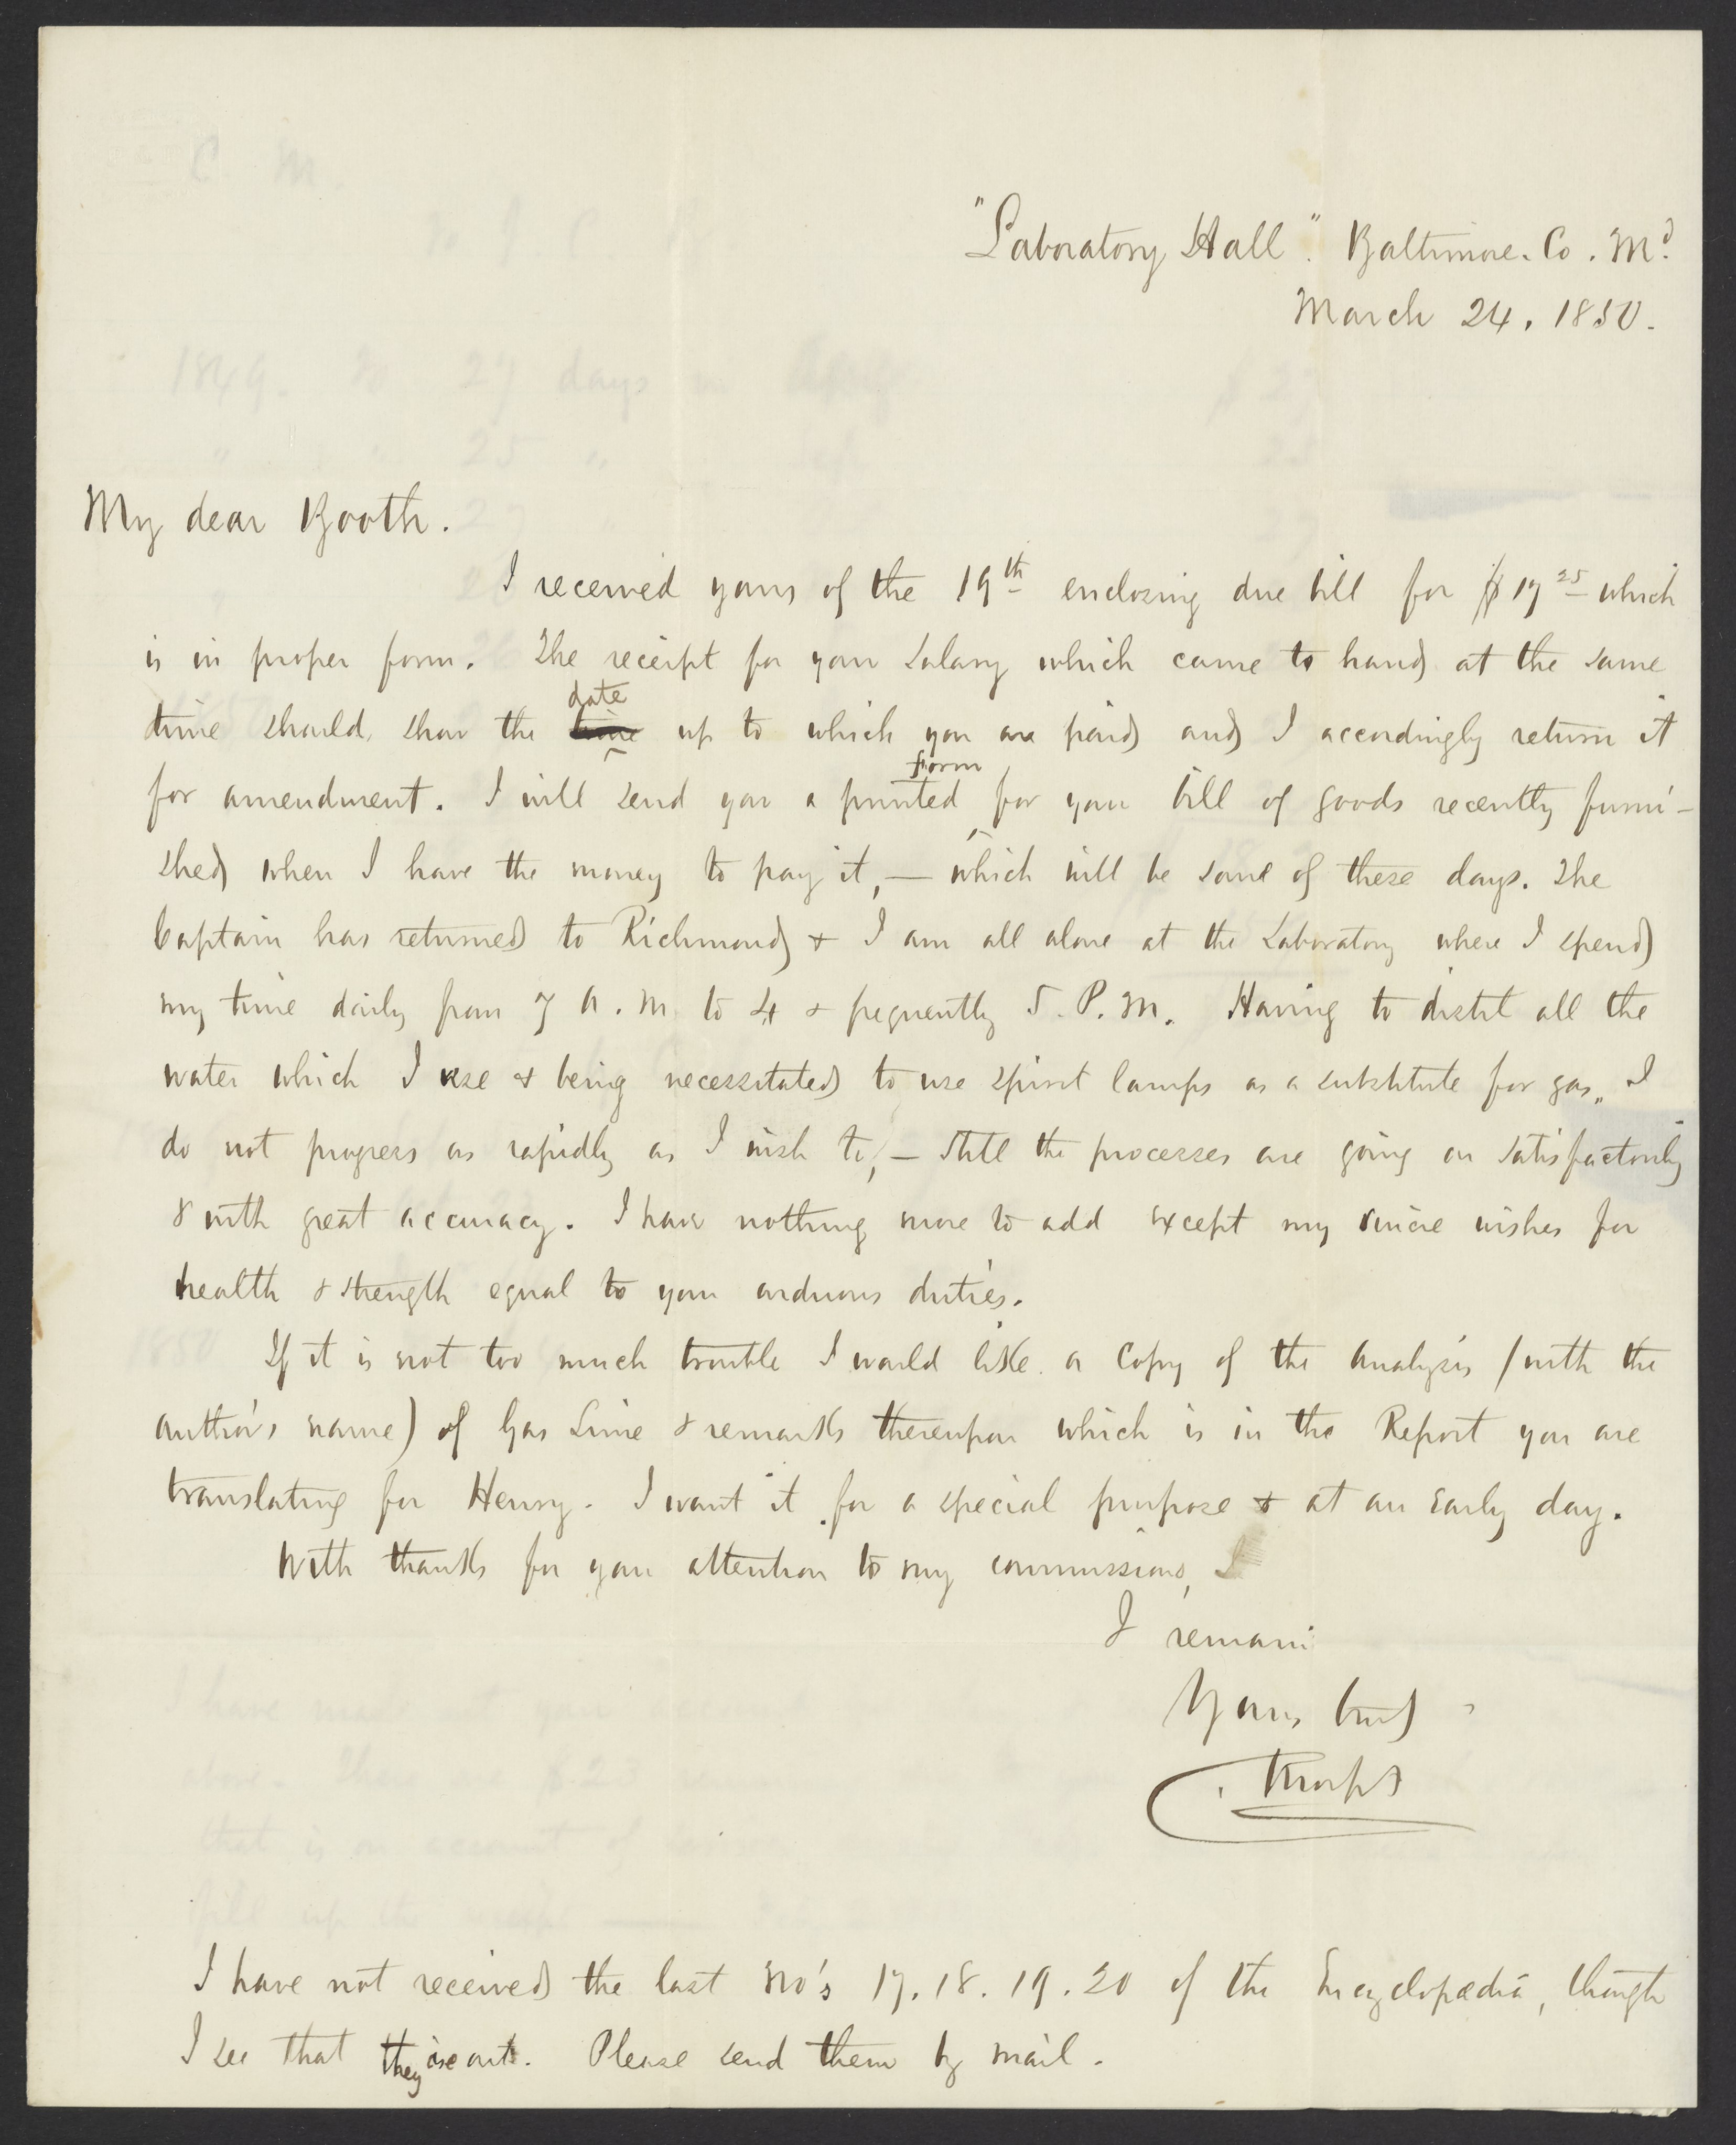 "Laboratory Hall". Baltimore. Co. Md.
March 24. 1850.
My dear Booth.
I received yours of the 19th enclosing due bill for $17 25 which
is in proper form. The receipt for your salary which came to hand at the same
date
time should show the time up to which you are paid and I accordingly return it
form
for amendment. I will send you a printed for your bill of goods recently furni-
shed when I have the money to pay it, — which will be some of these days. The
Captain has returned to Richmond & I am all alone at the Laboratory where I spend
my time daily from 7 A. M. to 4 & frequently 5. P. M. Having to distil all the
water which I use & being necessitated to use spirit lamps as a substitute for gas, I
do not progress as rapidly as I wish to, — still the processes are going on satisfactorily
& with great accuracy. I have nothing more to add except my sincere wishes for
health & strength equal to your arduous duties.
If it is not too much trouble I would like a copy of the analysis (with the
author's name) of Gas Lime & remarks thereupon which is in the Report you are
translating for Henry. I want it for a special purpose & at an early day.
With thanks for your attention to my commissions, I
I remain
Yours
I have not received the last No's 17. 18. 19. 20 of the Encyclopædia, though
I see that they are out. Please send them by mail.